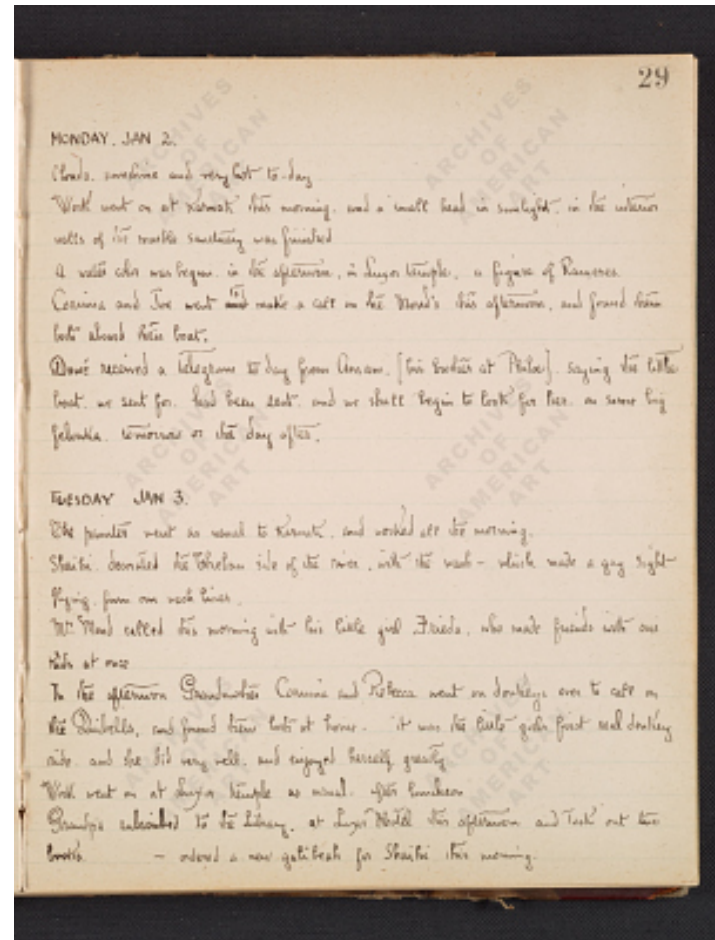 29
MONDAY. JAN 2.
Clouds. sunshine and very hot to-day
Work went on at Karnak this morning. and a small head in sunlight. in the interior
walls of the marble sanctuary was finished
A water color was begun. in the afternoon, in Luxor temple. a figure of Rameses.
Corinna and Joe went to make a call on the Mond's this afternoon, and found them
both aboard their boat.
received a telegram to day from [his brother at Philae]. saying the little
boat. we sent for. had been sent. and we shall begin to look for her. on some big
felucka. tomorrow or the day after.
TUESDAY JAN 3.
The painter went as usual to Karnak, and worked all the morning.
Shaibi. decorated the Theban side of the river, with the wash - which made a gay sight -
flying. from our neck lines.
Mr. Mond called this morning with his little girl Frieda, who made friends with our
kids at once
In the afternoon Grandmother Corinna and Rebecca went on donkeys over to call on
the Quibells, and found them both at home. it was the little girls first real donkey
ride. and she did very well. and enjoyed herself greatly
Work went on at Luxor temple as usual. after luncheon
Grandpa subscribed to the Library. at Luxor Hotel this afternoon and took out two
books. - ordered a new for Shaibi this morning.
ARCHIVES
OF
AMERICAN
ART
ARCHIVES
OF
AMERICAN
ART
ARCHIVES
OF
AMERICAN
ART
ARCHIVES
OF
AMERICAN
ART
ARCHIVES
OF
AMERICAN
ART
ARCHIVES
OF
AMERICAN
ART